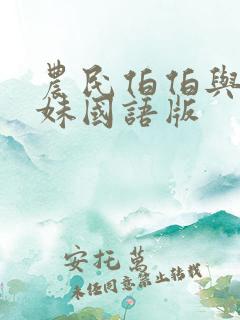 農民伯伯與
妹國語版
安托萬
未經同意禁止轉載